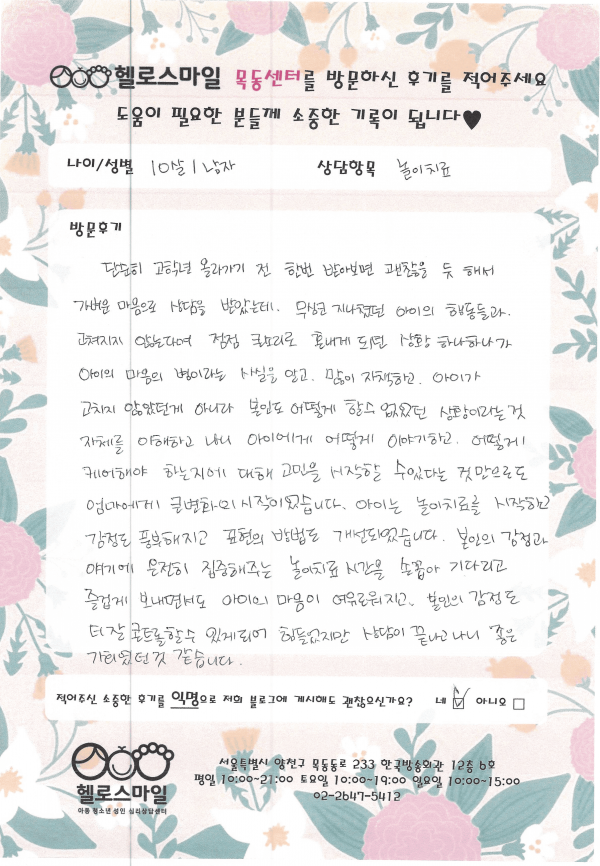 헬로스마일 목동센터를 방문하신 후기를 적어주세요
도움이 필요한 분들께 소중한 기록이 됩니다♥
나이/성별 10살 / 남자 상담항목 놀이치료
방문후기
단순히 고학년 올라가기 전 한번 받아보면 괜찮을 듯 해서
가벼운 마음으로 상담을 받았는데. 무심코 지나쳤던 아이의 행동들과.
고쳐지지 않는다여 점점 큰소리로 혼내게 되던 상황 하나하나가
아이의 마음의 병이라는 사실을 알고. 많이 자책하고. 아이가
고치지 않았던게 아니라 본인도 어떻게 할수 없었던 상황이라는 것
자체를 이해하고 나니 아이에게 어떻게 이야기하고. 어떻게
케어해야 하는지에 대해 고민을 시작할 수있다는 것만으로도
엄마에게 큰변화의 시작이었습니다. 아이는 놀이치료를 시작하고
감정도 풍부해지고 표현의 방법도 개선되었습니다. 본인의 감정과
얘기에 온전히 집중해주는 놀이치료 시간을 손꼽아 기다리고
즐겁게 보내면서도 아이의 마음이 여유로워지고. 본인의 감정도
더 잘 콘트롤할수 있게되어 힘들었지만 상담이 끝나고 나니 좋은
기회였던것 같습니다.
적어주신 소중한 후기를 익명으로 저희 블로그에 게시해도 괜찮으신가요? 네 ☑ 아니오 □
헬로스마일
아동 청소년 성인 심리상담센터
서울특별시 양천구 목동동로 233 한국방송회관 12층 6호
평일 10:00~21:00 토요일 10:00~19:00 일요일 10:00~15:00
02-2647-5412